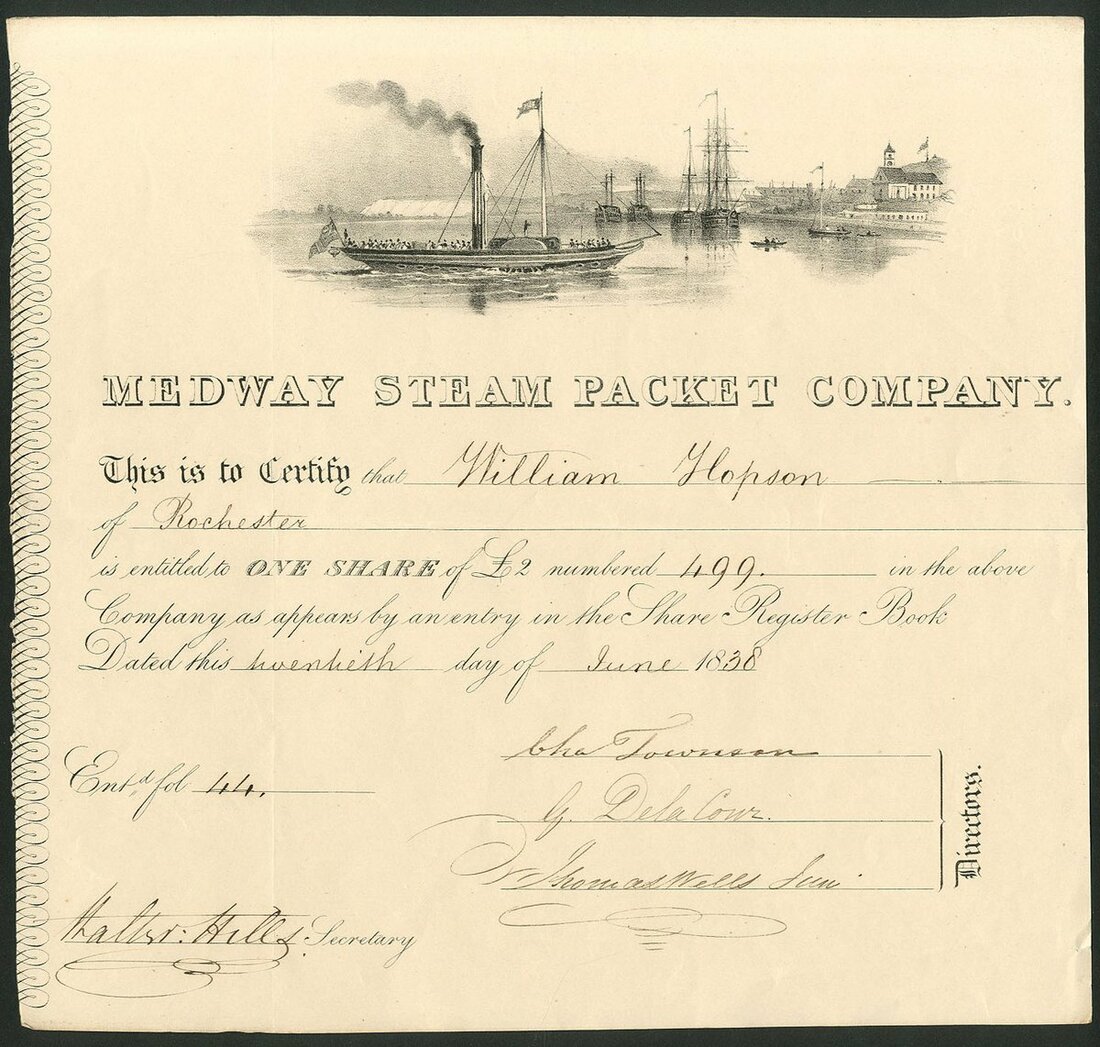 MEDWAY STEAM PACKET COMPANY.
This is to Certify that William Hopson
of Rochester
is entitled to ONE SHARE of £2 numbered 499. in the above
Company as appears by an entry in the Share Register Book
Dated this twentieth day of June 1838
Cha Townson
Entd. fol 44.
G. Delacour.
Thomas Wells Jun
Directors.
Walter: Hills Secretary